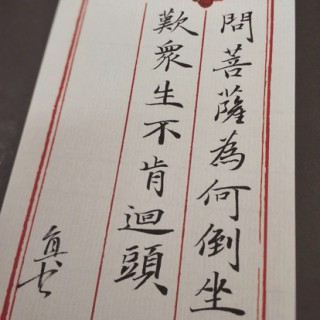 問菩薩為何倒坐
歎眾生不肯迴頭